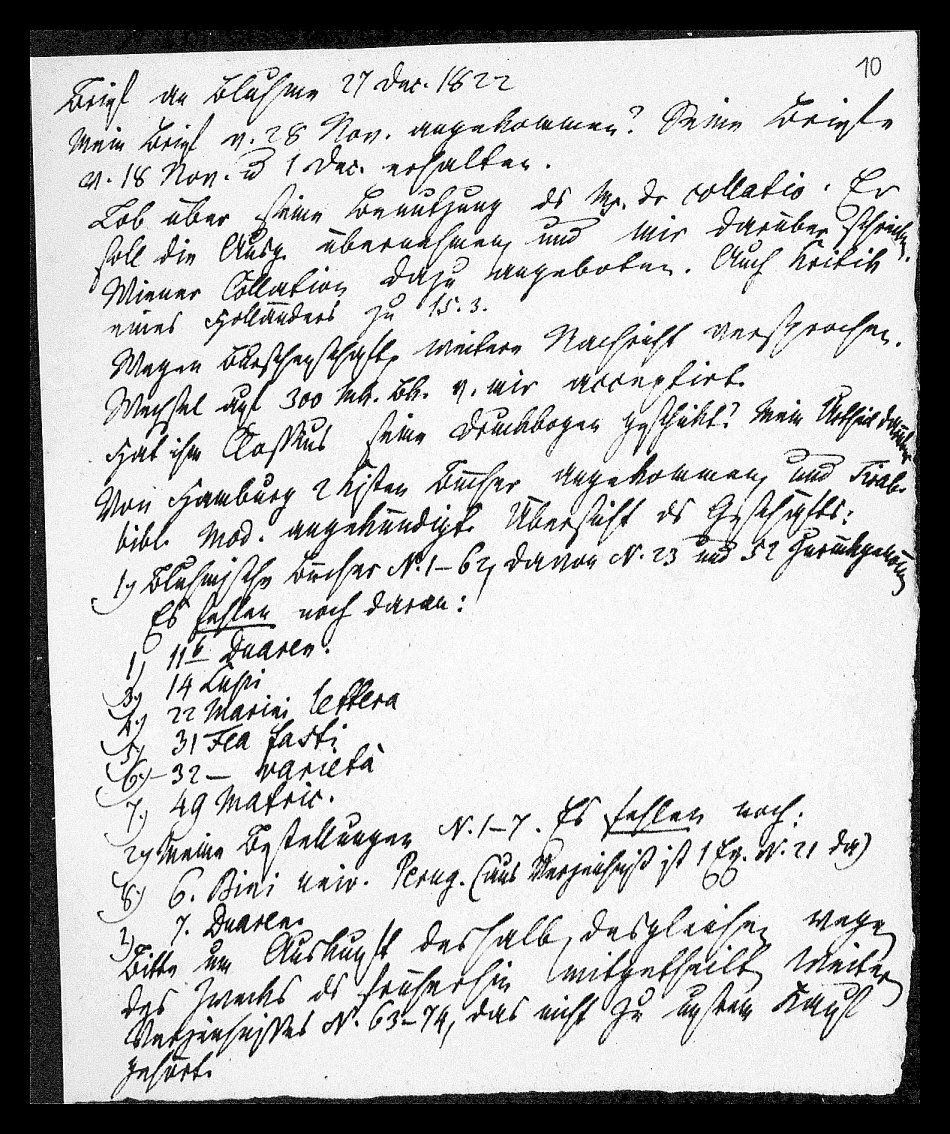 10
Brief an Bluhme 27 Dec. 1822
Mein Brief v. 28 Nov. angekommen? Seine Briefe
v. 18 Nov. u 1 Dec. erhalten.
Lob über seine Benutzung ds Mp. dr collatio. Er
soll die Ausg. übernehmen und mir darüber schreiben.
Wiener Collation dazu angeboten. Auch Kritik
eines Holländers zu 15.3.
Wegen Burschenschaft weitere Nachricht versprochen.
Wechsel auf 300 Mk. Bk. v. mir acceptirt.
Hat ihm Clossius seine Druckbogen geschikt? Mein Urtheil darüber
Von Hamburg 2 Kisten Bücher angekommen und Tirab.
bibl. Mod. angekündigt. Übersicht ds Geschäfts:
1) Bluhmische Bücher N. 1–62, davon N. 23 und 52 zurückgenommen
Es fehlen noch daran:
1) 11b Duaren.
3) 14 Lupi
4) 22 Marini lettera
5) 31 Fea fasti
6) – 32 – varietà
7) 49 Matric.
2) Meine Bestellungen N. 1–7. Es fehlen noch:
8) 6. Bini univ. Perug. (aus Verzeichniß ist 1 Ex. N. 21 da)
3) 7. Duaren.
Bitte um Auskunft deshalb, desgleichen wegen
des Zwecks ds früherhin mitgetheilten weitern
Verzeichnisses N. 63–74, das nicht zu unsrem Kauf
gehört.